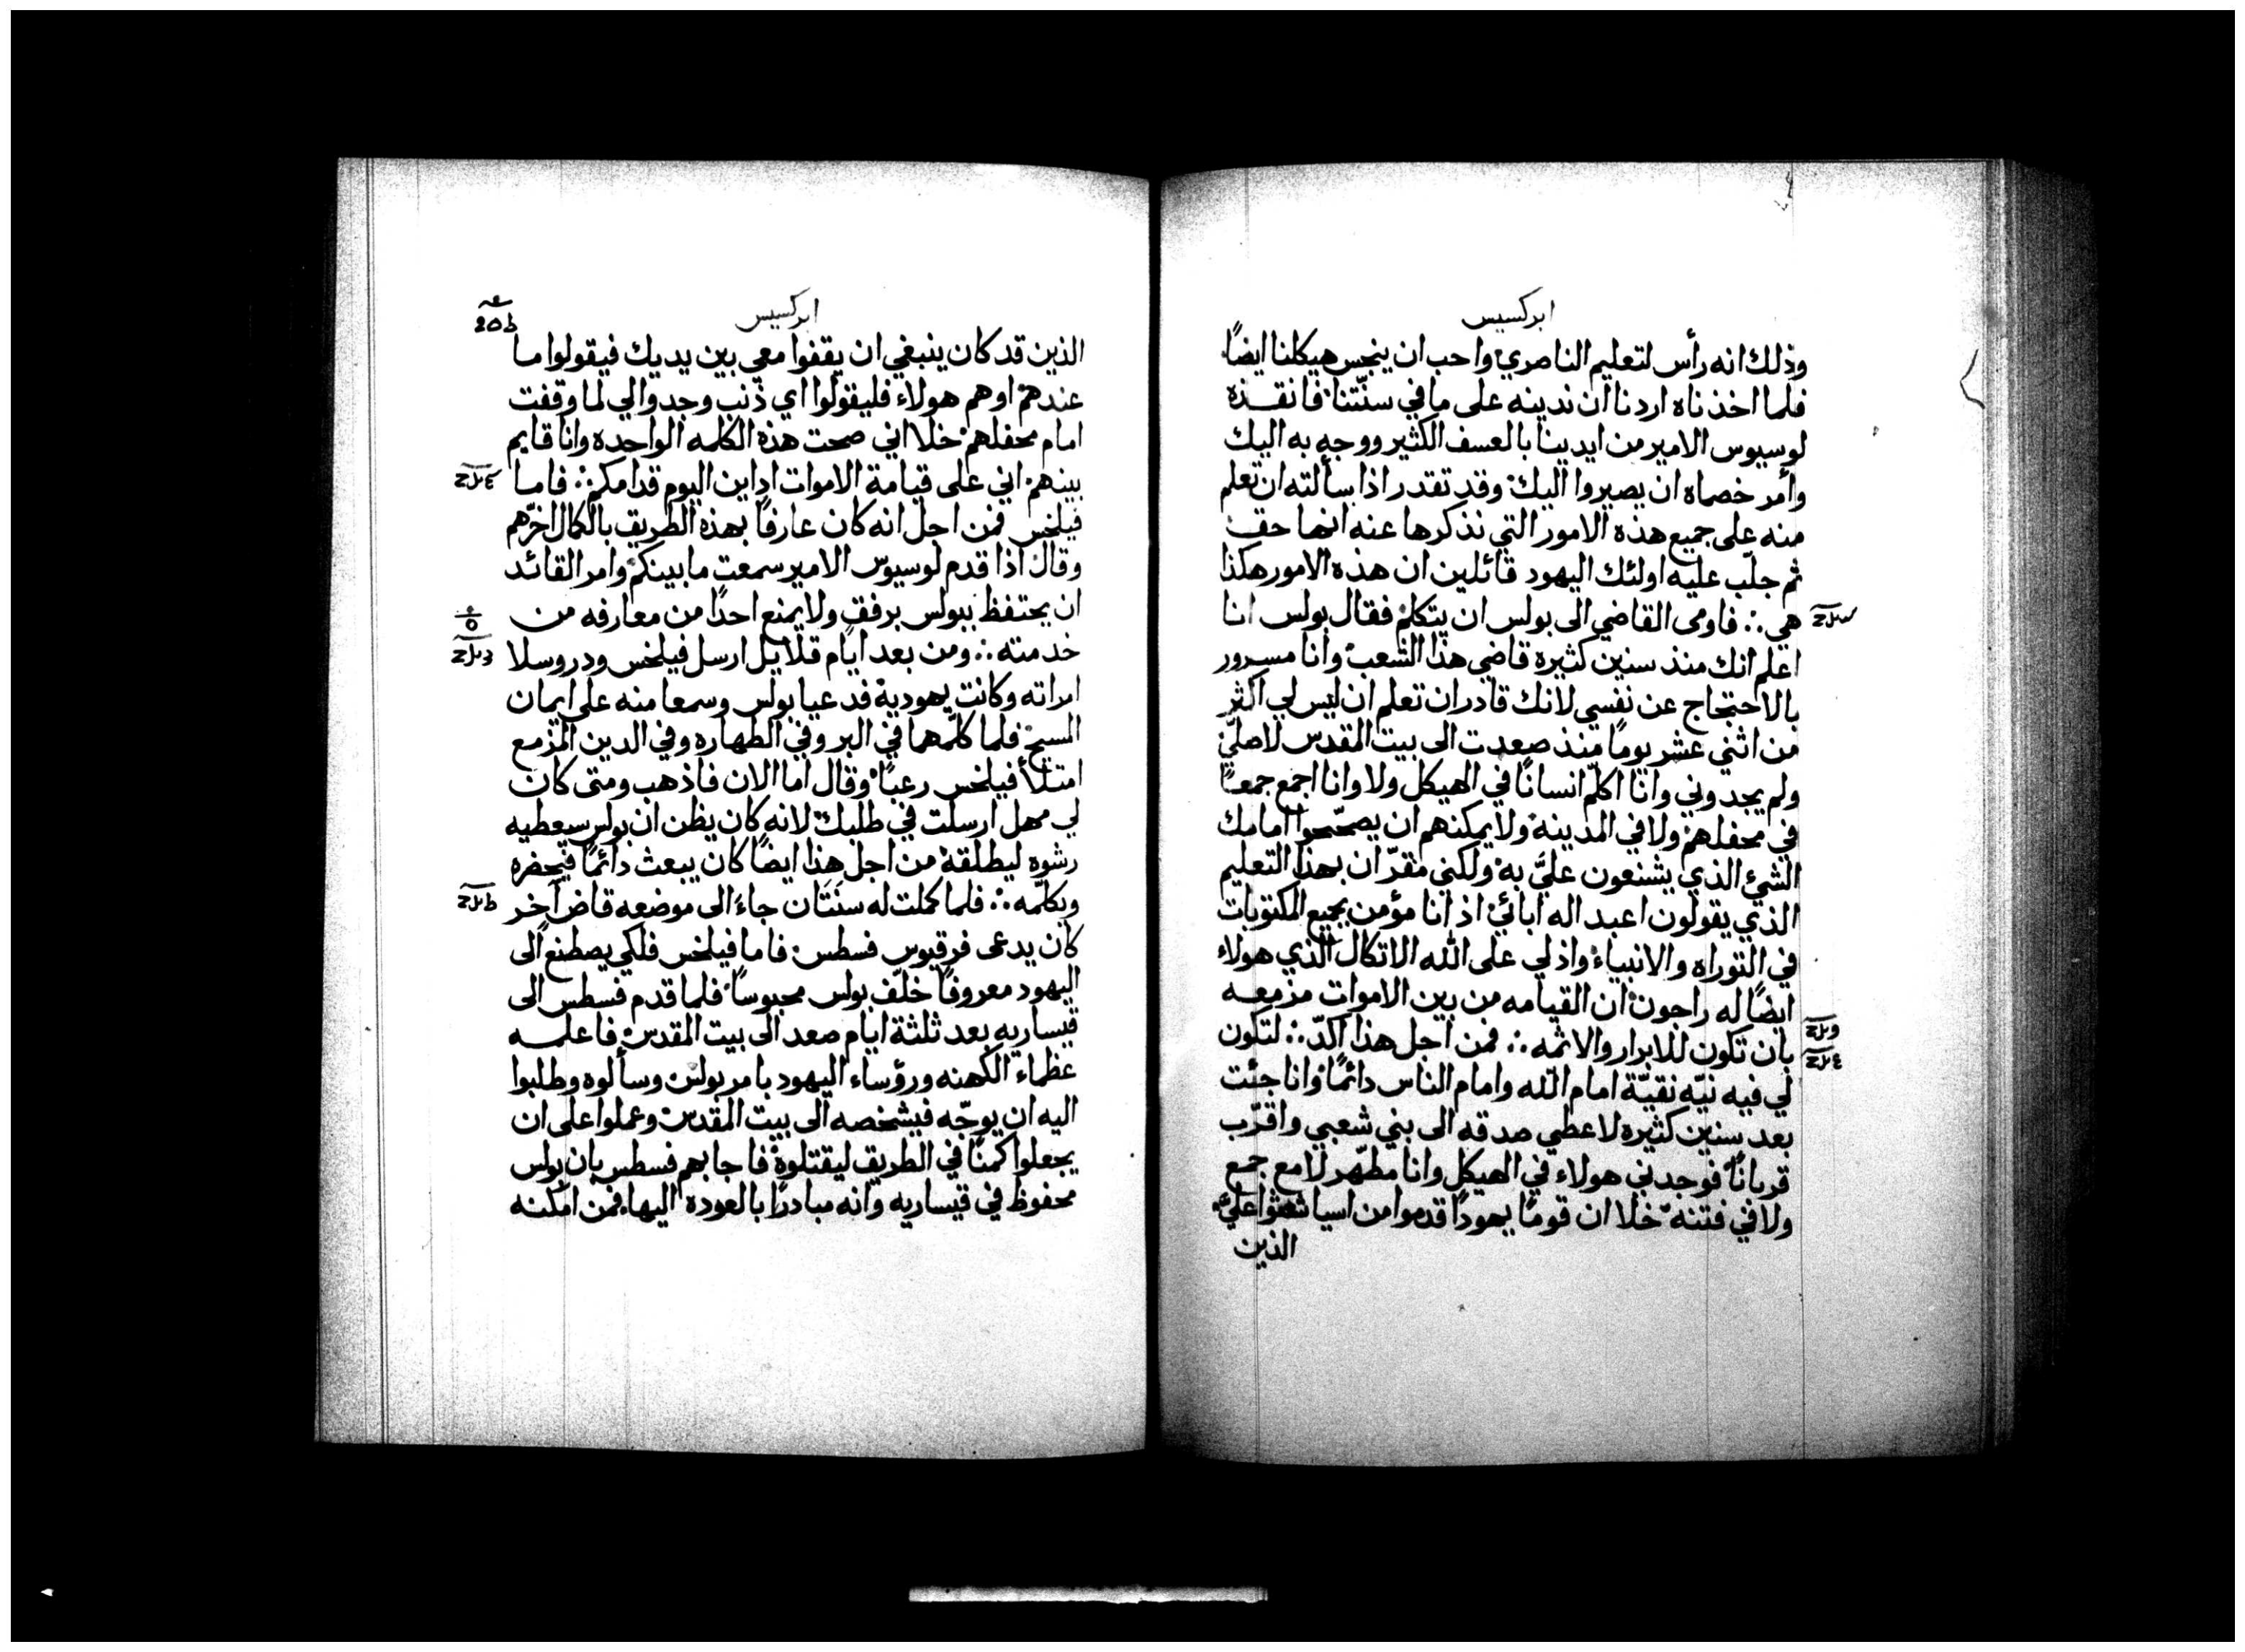 ابركسيس
وذلك انه رأس لتعليم الناصري واحب ان ينجس هيكلنا ايضًا
فلما اخذناه اردنا ان ندينه على ما في سنّتنا فانقذه
لوسيوس الامير من ايدينا بالعسف الكثير ووجه به اليك
وأمر خصماه ان يصيروا اليك وقد تقدر اذا سألته ان تعلم
منه على جميع هذه الامور التي نذكرها عنه انها حق
ثم جلّب عليه اولئك اليهود قائلين ان هذه الامور هكذا
هي ∴ فاومى القاضي الى بولس ان يتكلم فقال بولس انا
اعلم انك منذ سنين كثيرة قاضي هذا الشعب وانا مسرور
بالاحتجاج عن نفسي لانك قادر ان تعلم ان ليس لي اكثر
من اثنى عشر يومًا منذ صعدت الى بيت المقدس لاصلي
ولم يجدوني وانا اكلّم انسانًا في الهيكل ولا وانا اجمع جمعًا
في محفلهم ولا في المدينة ولا يمكنهم ان يصحّحوا امامك
الشئ الذي يشنعون عليّ به ولكني مقرّ ان بهذا التعليم
الذي يقولون اعبد اله ابائي اذ انا مؤمن بجميع المكتوبات
في التوراه والانبياء واذ لي على الله الاتكال الذي هولاء
ايضًا له راجون ان القيامه من بين الاموات مزمعه
بان تكون للابرار والاثمه ∴ فمن اجل هذا اكدّ ∴ لتكون
لي فيه نيّه نقيّة امام الله وامام الناس دائمًا وانا جئت
بعد سنين كثيره لاعطي صدقه الى بني شعبي واقرّب
قربانًا فوجدني هولاء في الهيكل وانا مطهّر لا مع جمع
ولا في فتنه خلا ان قومًا يهودًا قدموا من اسيا شغثوا عليّ
الذين
ابركسيس
الذين قد كان ينبغي ان يقفوا معي بين يديك فيقولوا ما
عندهم او هم هولاء فليقولوا اي ذنب وجدوا لي لما وقفت
امام محفلهم خلا اني صحت هذه الكلمه الواحده وانا قايم
بينهم اني على قيامة الاموات اداين اليوم قدامكم ∴ فاما
فيلخس فمن اجل انه كان عارفًا بهذه الطريق بالكمال اخّرهم
وقال اذا قدم لوسيوس الامير سمعت ما بينكم وامر القائد
ان يحتفظ ببولس برفق ولا يمنع احدًا من معارفه من
خدمته ∴ ومن بعد ايام قلايل ارسل فيلخس ودروسلا
امراته وكانت يهودية فدعيا بولس وسمعا منه على ايمان
المسيح فلما كلّمهما في البر وفي الطهاره وفي الدين المزمع
امتلأ فيلخس رعبًا وقال اما الان فاذهب ومتى كان
لي مهل ارسلت في طلبك لانه كان يظن ان بولس سيعطيه
رشوه ليطلقه من اجل هذا ايضًا كان يبعث دائمًا فيحضره
ويكلّمه ∴ فلما كملت له سنَتان جاءَ الى موضعه قاض آخر
كان يدعى فرقيوس فسطس فاما فيلخس فلكي يصطنع الى
اليهود معروفًا خلّف بولس محبوسًا فلما قدم فسطس الى
قيساريه بعد ثلثة ايام صعد الى بيت المقدس فاعلمه
عظماء الكهنه ورؤساء اليهود بامر بولس وسألوه وطلبوا
اليه ان يوجّه فيشخصه الى بيت المقدس وعملوا على ان
يجعلوا كمنًا في الطريق ليقتلوه فاجابهم فسطس بان بولس
محفوظ في قيساريه وانه مبادرًا بالعودة اليها فمن امكنه